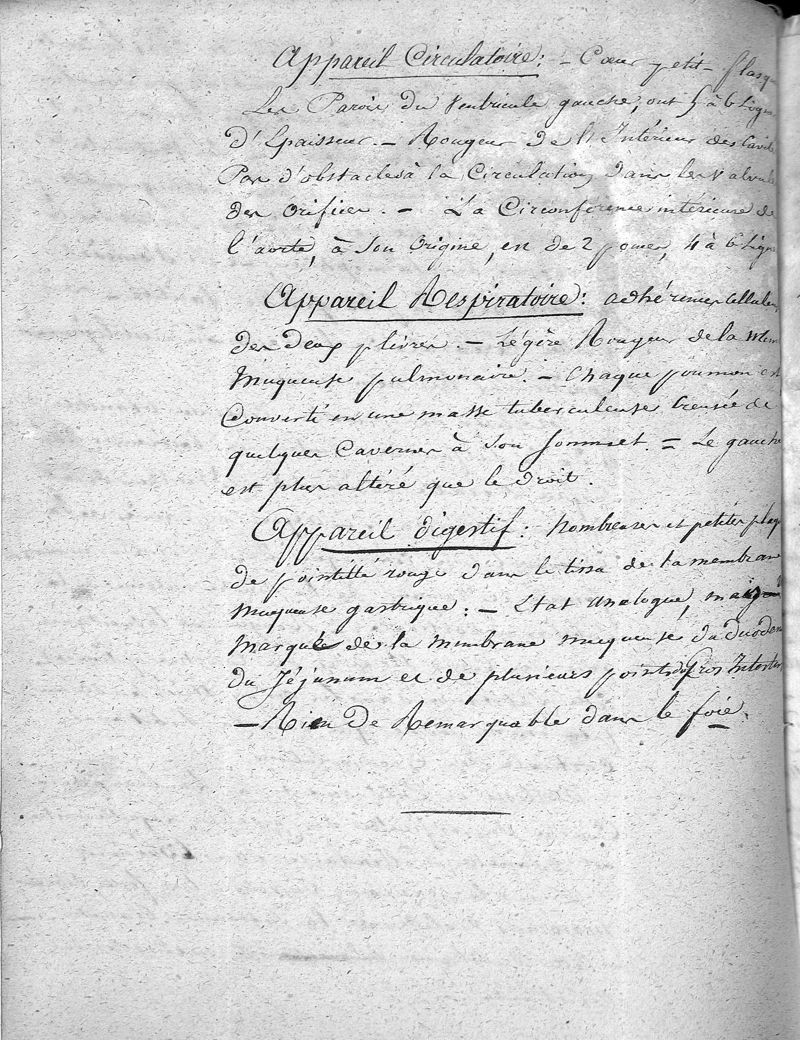 Appareil Circulatoire: - Cœur petit - flasq
Les Parois du Ventricule gauche, ont 5 à 6 Lign
d'Epaisseur. - Rougeur de l'Intérieur des Cavit
Pas d'obstacles à la Circulation, dans les Valvule
des Orifices. - La Circonférence intérieure de
l'aorte, à son Origine, en de 2 pouces, 4 à 6 Lign
Appareil Respiratoire: adhérences Cellules
des deux plèvres. - Légère Rougeur de la Mem
Muqueuse pulmonaire. - Chaque poumon est
Converti en une masse tuberculeuse Creusée de
quelques Cavernes à Son Sommet. = Le gauche
est plus altéré que le droit.
Appareil digestif: Nombreuses et petites plaq
de pointillé rouge dans le tissu de la membrane
Muqueuse gastrique: - Etat analogue, mais
Marquée de la Membrane muqueuse du duoden
du Jéjunum et de plusieurs points du Gros Intestin
- Rien de Remarquable dans le foie.